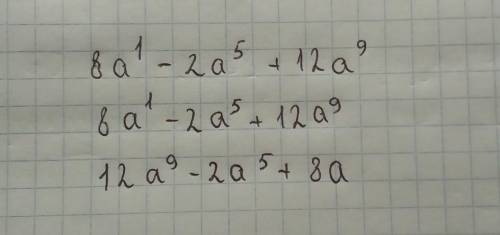 8a¹ - 2a⁵ + 12a⁹
8a¹ - 2a⁵ + 12a⁹
12a⁹ - 2a⁵ + 8a